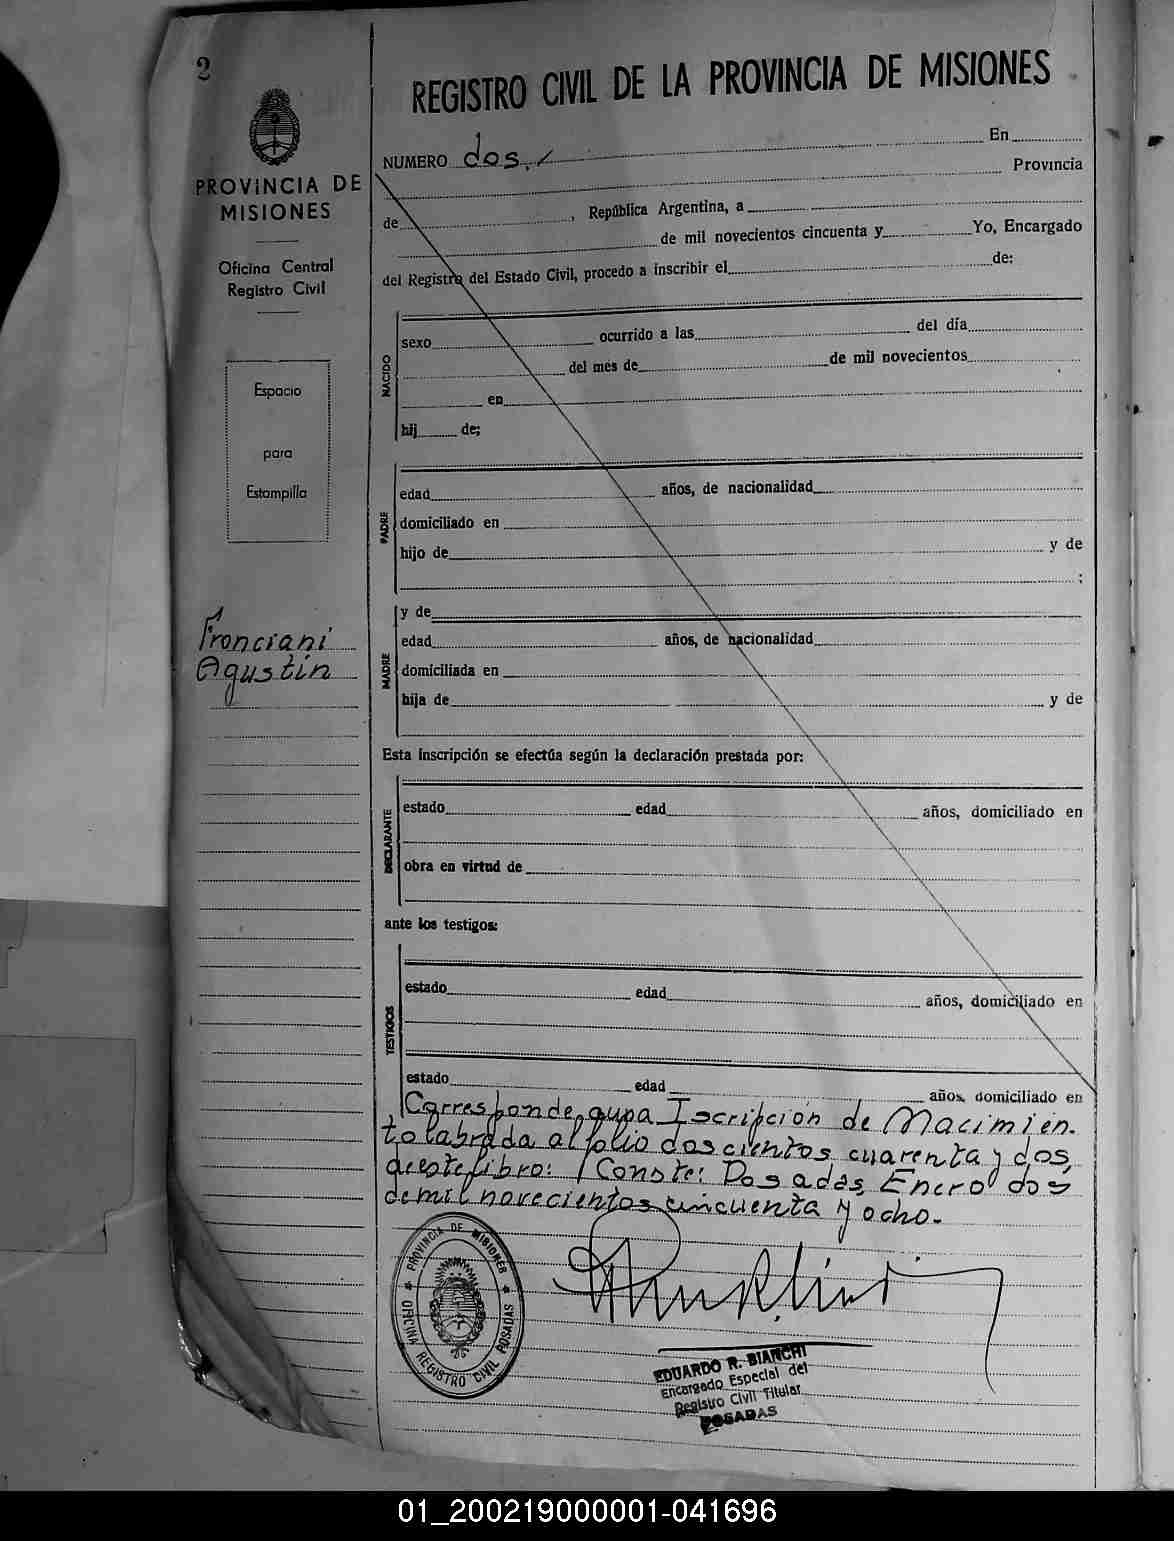 2
PROVINCIA DE
MISIONES
Oficina Central
Registro Civil
Espacio
para
Estampilla
Fronciani
Agustín
REGISTRO CIVIL DE LA PROVINCIA DE MISIONES
NUMERO dos./ En
Provincia
de , República Argentina, a
de mil novecientos cincuenta y Yo, Encargado
del Registro del Estado Civil, procedo a inscribir el de:
NACIDO
sexo ocurrido a las del día
del mes de de mil novecientos
en
hij de;
PADRE
edad años, de nacionalidad
domiciliado en
hijo de y de
;
MADRE
y de
edad años, de nacionalidad
domiciliada en
hija de y de
Esta inscripción se efectúa según la declaración prestada por:
DECLARANTE
estado edad años, domiciliado en
obra en virtud de
ante los testigos:
TESTIGOS
estado edad años, domiciliado en
estado edad años, domiciliado en
Corresponde, a una Iscripción de Nacimien.
to labrada al folio doscientos cuarenta y dos,
de este libro: / Conste: Posadas, Enero dos
de mil novecientos cincuenta y ocho.
PROVINCIA DE MISIONES
OFICINA REGISTRO CIVIL POSADAS
EDUARDO R. BIANCHI
Encargado Especial del
Registro Civil Titular
POSADAS
01_200219000001-041696